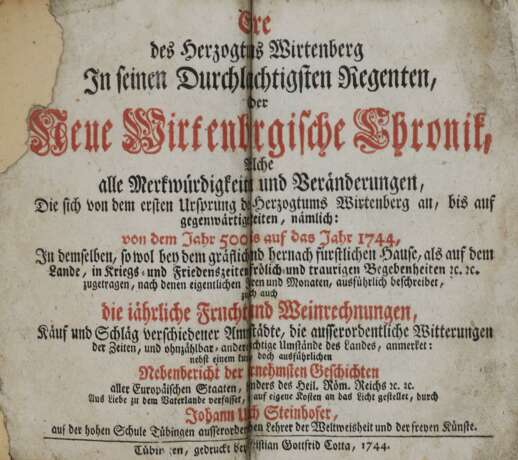 Ere
des Herzogtus Wirtenberg
In seinen Durchlachtigsten Regenten,
der
Neue Wirtenbrgische Chronik,
lche
alle Merkwürdigkein und Veränderungen,
Die sich von dem ersten Ursprung des Herzogtums Wirtenberg an, bis auf
gegenwärtigeiten, nämlich:
von dem Jahr 500is auf das Jahr 1744,
In demselben, so wol bey dem gräflichnd hernach fürstlichen Hause, als auf dem
Lande, in Kriegs- und Friedenszeitenfrölich und traurigen Begebenheiten ꝛc. ꝛc.
zugetragen, nach denen eigentlichen ren und Monaten, ausführlich beschreibet,
auch
die jährliche Fruchtnd Weinrechnungen,
Käuf und Schläg verschiedener Amstädte, die ausserordentliche Witterungen
der Zeiten, und ohnzählbar- andechtige Umstände des Landes, anmerket:
nebst einem doch ausführlichen
Nebenbericht der ernehmsten Geschichten
aller Europäischen Staaten, nders des Heil. Röm. Reichs ꝛc. ꝛc.
Aus Liebe zu dem Vaterlande verfasset, auf eigene Kosten an das Licht gestellet, durch
Johann Uch Steinhofer,
auf der hohen Schule Tübingen ausserorden Lehrer der Weltweisheit und der freyen Künste.
Tübingen, gedruckt bey istian Gottfrid Cotta, 1744.